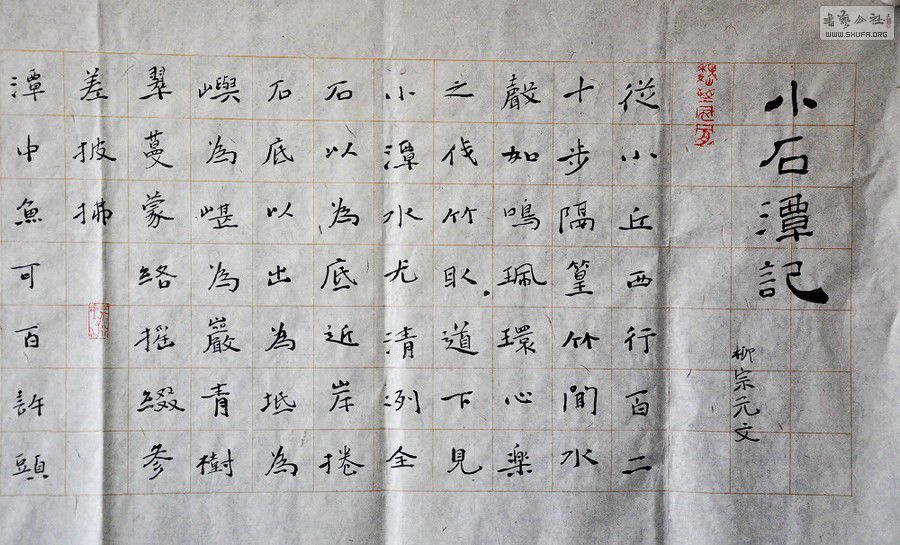 小石潭記
柳宗元文
從小丘西行百二
十步隔篁竹聞水
聲如鳴珮環心樂
之伐竹取道下見
小潭水尤清冽全
石以為底近岸捲
石底以出為坻為
嶼為嵁為巖青樹
翠蔓蒙絡搖綴參
差披拂
潭中魚可百許頭
書藝公社
WWW.SHUFA.ORG